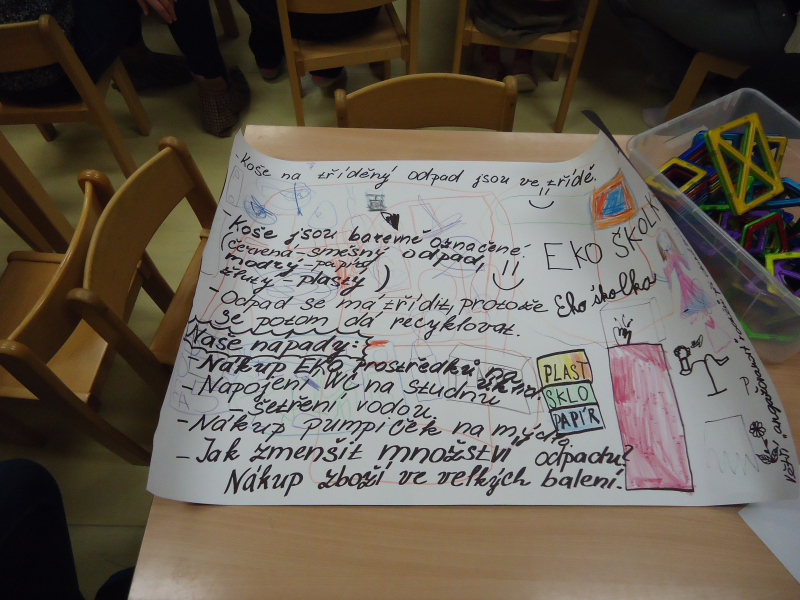 - Koše na tříděný odpad jsou ve třídě.
- Koše jsou barevně označené
(červená - směsný odpad,
modrý - papíry
žlutý - plasty)
- Odpad se má třídit, protože
se potom dá recyklovat.
Naše nápady:
- Nákup EKO prostředků na úklid
- Napojení WC na studnu
- šetření vodou
- Nákup pumpiček na mýdlo
- Jak zmenšit množství odpadu?
Nákup zboží ve velkých balení.
EKO ŠKOLKA
Eko školka
PLAST
SKLO
PAPÍR
Větší angažovanost